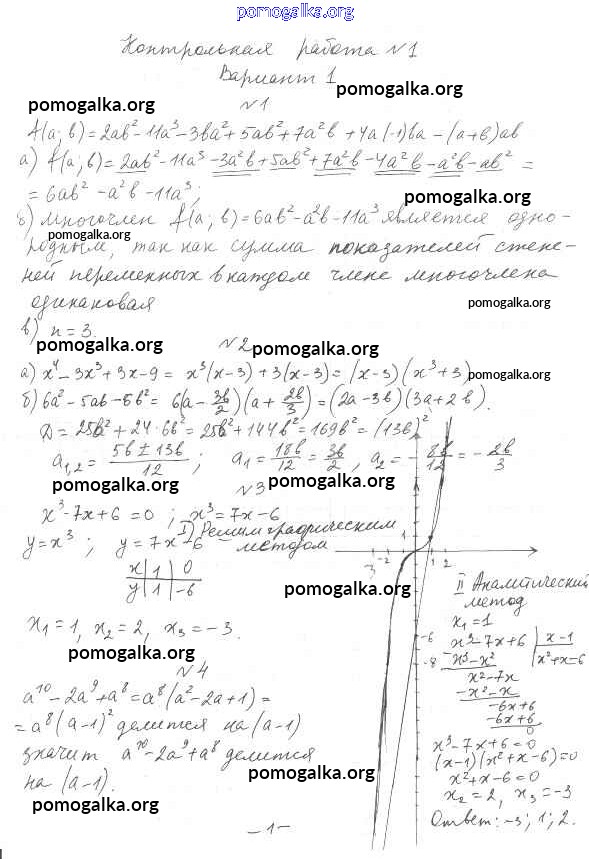 pomogalka.org
Контрольная работа N1
Вариант 1
pomogalka.org
pomogalka.org
N1
f(a; b) = 2ab² - 11a³ - 3ba² + 5ab² + 7a²b + 4a(-1)ba - (a+b)ab
а) f(a; b) = 2ab² - 11a³ - 3a²b + 5ab² + 7a²b - 4a²b - a²b - ab² =
= 6ab² - a²b - 11a³;
pomogalka.org
б) многочлен f(a; b) = 6ab² - a²b - 11a³ является одно-
pomogalka.org
родным, так как сумма показателей степе-
ней переменных в каждом члене многочлена
одинаковая
pomogalka.org
в) n = 3.
pomogalka.org
N2
pomogalka.org
а) x⁴ - 3x³ + 3x - 9 = x³(x-3) + 3(x-3) = (x-3)(x³+3)
pomogalka.org
б) 6a² - 5ab - 6b² = 6(a - 3b/2)(a + 2b/3) = (2a-3b)(3a+2b).
D = 25b² + 24·6b² = 25b² + 144b² = 169b² = (13b)²
a₁,₂ = (5b ± 13b)/12 ; a₁ = 18b/12 = 3b/2, a₂ = -8b/12 = -2b/3
pomogalka.org
pomogalka.org
N3
x³ - 7x + 6 = 0 ; x³ = 7x - 6
I) Решим графическим
методом
y = x³ ; y = 7x - 6
x | 1 | 0
y | 1 | -6
pomogalka.org
-3 -2 1 2
-6
-8
x₁ = 1, x₂ = 2, x₃ = -3.
pomogalka.org
II Аналитический
метод
x₁ = 1
x³ - 7x + 6 | x - 1
x³ - x² | x² + x - 6
x² - 7x
x² - x
-6x + 6
-6x + 6
0
x³ - 7x + 6 = 0
(x-1)(x² + x - 6) = 0
x² + x - 6 = 0
x₂ = 2, x₃ = -3
Ответ: -3; 1; 2.
N4
a¹⁰ - 2a⁹ + a⁸ = a⁸(a² - 2a + 1) =
= a⁸(a-1)² делится на (a-1)
значит a¹⁰ - 2a⁹ + a⁸ делится
pomogalka.org
на (a-1).
pomogalka.org
-1-